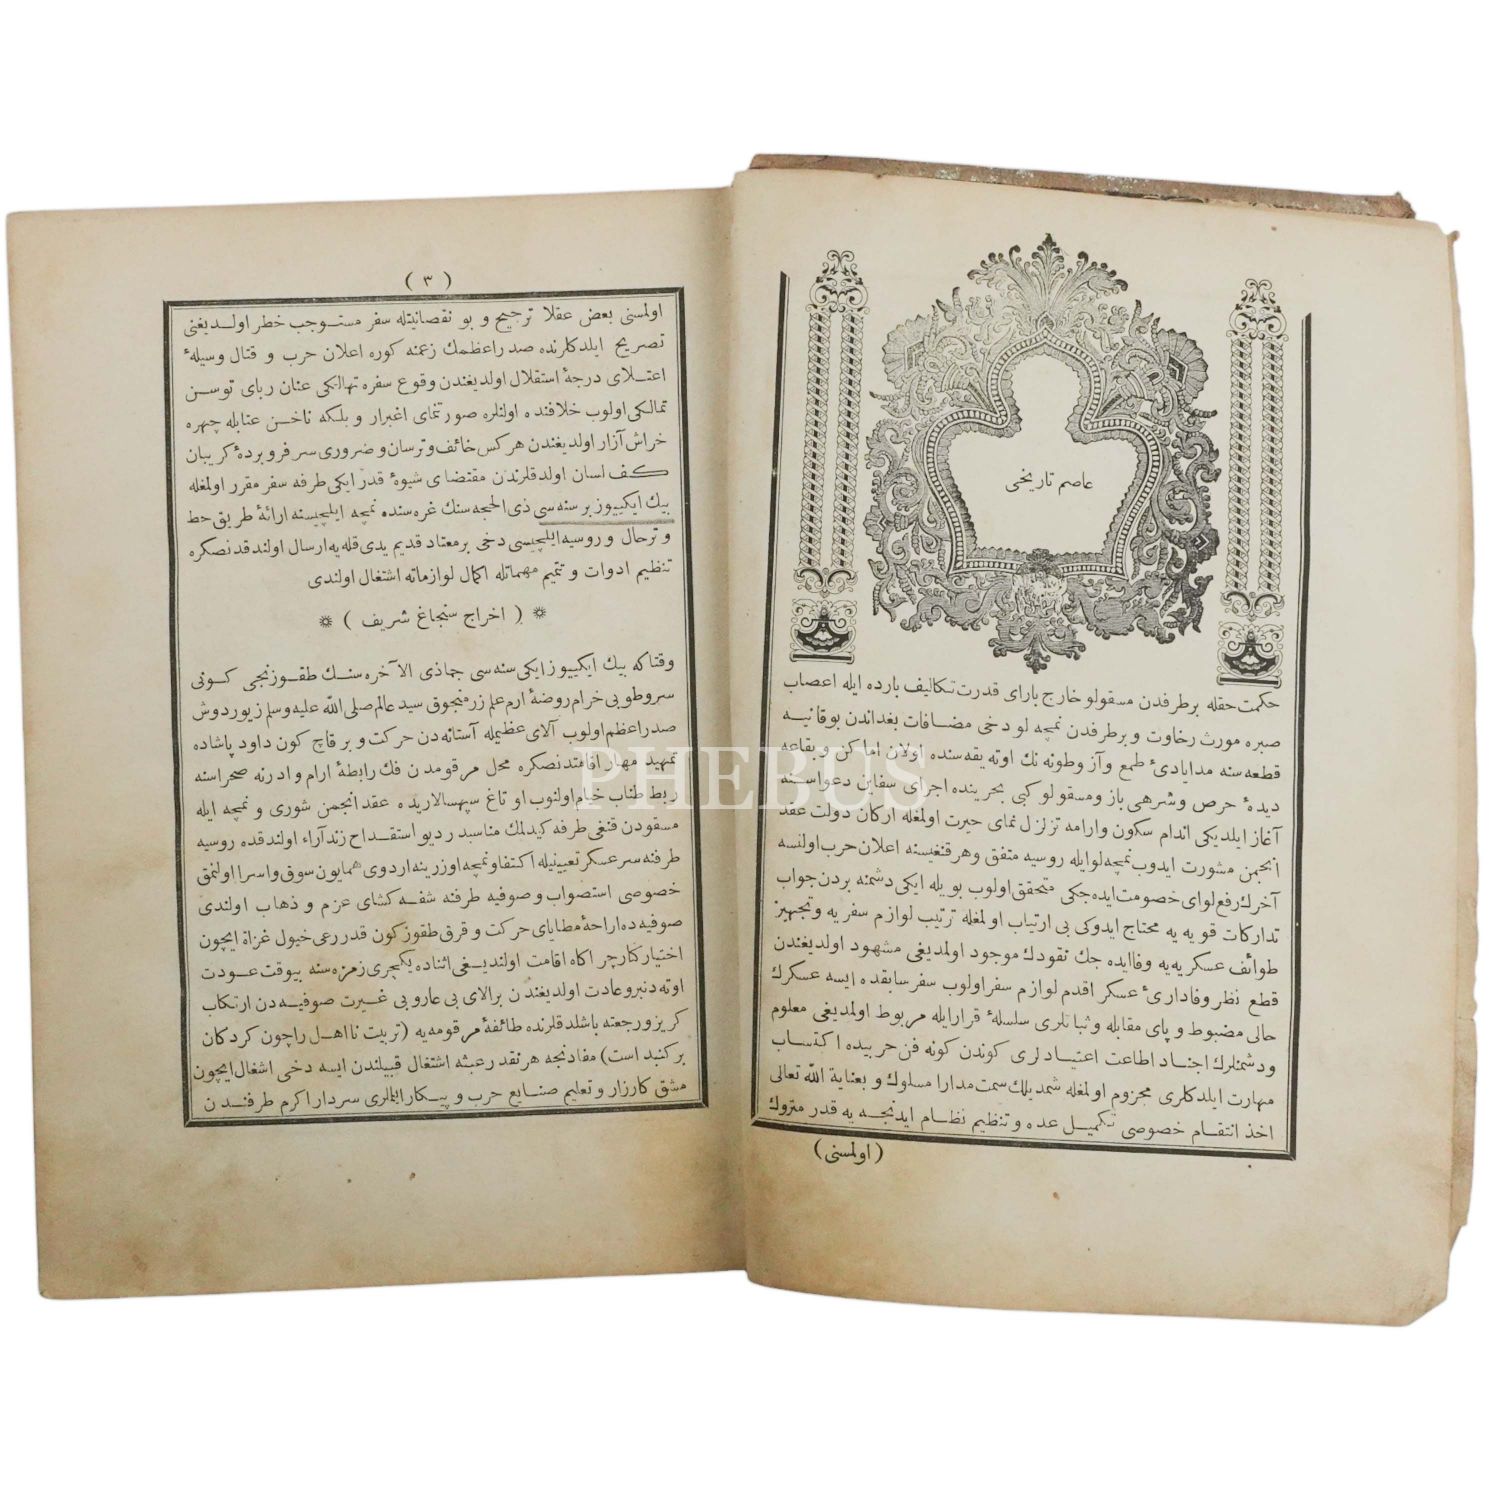 عاصم تاریخی
حکمت حقله برطرفدن مسقولو خارج یارای قدرت تکالیف بارده ایله اعصاب
صبره مورث رخاوت و برطرفدن نمچه لو دخی مضافات بغداندن بوقانیه
قطعه سنه مدایادیٔ طمع و آز وطونه نك اوته یقه سنده اولان اماکن و بقاعه
دیدهٔ حرص وشرهی باز ومسقولو کبی بحریننده اجرای سفاین دعواسنه
آغاز ایلدیکی اندام سکون وارامه تزلزل نمای حیرت اولمغله ارکان دولت عقد
انجمن مشورت ایدوب نمچه لوایله روسیه متفق وهرقنغیسنه اعلان حرب اولنسه
آخرك رفع لوای خصومت ایده جکی متحقق اولوب بویله ایکی دشمنه بردن جواب
تدارکات قویه یه محتاج ایدوکی بی ارتیاب اولمغله ترتیب لوازم سفریه وتجهیز
طوائف عسکریه یه وفاایده جك نقودك موجود اولمدیغی مشهود اولدیغندن
قطع نظر وفاداریٔ عسکر اقدم لوازم سفر اولوب سفر سابقده ایسه عسکرك
حالی مضبوط و پای مقابله وثباتلری سلسلهٔ قرارایله مربوط اولمدیغی معلوم
ودشمنلرك اجناد اطاعت اعتیادلری کوندن کونه فن حربیده اکتساب
مهارت ایلدکلری مجزوم اولمغله شمدیلك سمت مدارا مسلوك و بعنایة الله تعالی
اخذ انتقام خصوصی تکمیل عده و تنظیم نظام ایدنجه یه قدر متروك
(اولمسنی)
(٣)
اولمسنی بعض عقلا ترجیح و بو نقصانیتله سفر مستوجب خطر اولدیغنی
تصریح ایلدکلرنده صدراعظمك زعمنه کوره اعلان حرب و قتال وسیلهٔ
اعتلای درجهٔ استقلال اولدیغندن وقوع سفره تهالکی عنان ربای توسن
تمالکی اولوب خلافنده اولنلره صورتنمای اغبرار و بلکه ناخن عتابله چهره
خراش آزار اولدیغندن هرکس خائف وترسان وضروری سر فروبردهٔ کریبان
کف لسان اولدقلرندن مقتضای شیوهٔ قدر ایکی طرفه سفر مقرر اولمغله
بیك ایکییوز بر سنه سی ذی الحجه سنك غره سنده نمچه ایلچیسنه ارائهٔ طریق حط
و ترحال و روسیه ایلچیسی دخی بر معتاد قدیم یدی قله یه ارسال اولندقدنصکره
تنظیم ادوات و تتمیم مهماتله اکمال لوازماته اشتغال اولندی
( اخراج سنجاغ شریف )
وقتاکه بیك ایکییوز ایکی سنه سی جماذی الآخره سنك طقوزنجی کونی
سروطوبی خرام روضهٔ ارم علم زرمنجوق سید عالم صلی الله علیه وسلم زیوردوش
صدراعظم اولوب آلای عظیمله آستانه دن حرکت و بر قاچ کون داود پاشاده
تمهید مهاد اقامتدنصکره محل مرقومدن فك رابطهٔ ارام و ادرنه صحراسنه
ربط طناب خیام اولنوب اوتاغ سپهسالاریده عقد انجمن شوری و نمچه ایله
مسقودن قنغی طرفه کیدلمك مناسبدر دیو استقداح زند آراء اولندقده روسیه
طرفنه سرعسکر تعیینیله اکتفا و نمچه اوزرینه اردوی همایون سوق واسرا اولنمق
خصوصی استصواب و صوفیه طرفنه شقه کشای عزم و ذهاب اولندی
صوفیه ده اراحهٔ مطایای حرکت و قرق طقوز کون قدر رعی خیول غزاة ایچون
اختیارکارچر اکاه اقامت اولندیغی اثناده یکیچری زمره سنه بیوقت عودت
اوته دنبرو عادت اولدیغندن برالای بی عار و بی غیرت صوفیه دن ارتکاب
کریز ورجعته باشلدقلرنده طائفهٔ مرقومه یه (تربیت نااهل راچون کردکان
برکنبد است) مفادنجه هرنقدر عبثه اشتغال قبیلندن ایسه دخی اشغال ایچون
مشق کارزار و تعلیم صنایع حرب و پیکار ایتملری سردار اکرم طرفندن
PHEBUS